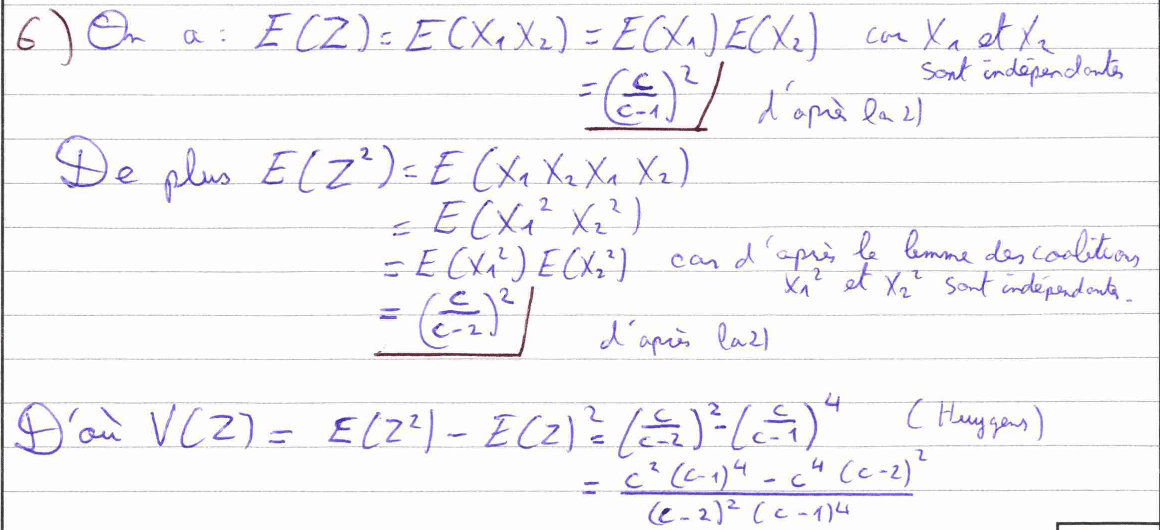 6) On a : E(Z) = E(X₁X₂) = E(X₁)E(X₂) car X₁ et X₂
sont indépendantes
= (c/(c-1))² d'après la 2)
De plus E(Z²) = E(X₁X₂X₁X₂)
= E(X₁² X₂²)
= E(X₁²)E(X₂²) car d'après le lemme des coalitions
X₁² et X₂² sont indépendantes.
= (c/(c-2))² d'après la 2)
D'où V(Z) = E(Z²) - E(Z)² = (c/(c-2))² - (c/(c-1))⁴ (Huygens)
= (c²(c-1)⁴ - c⁴(c-2)²)/((c-2)²(c-1)⁴)